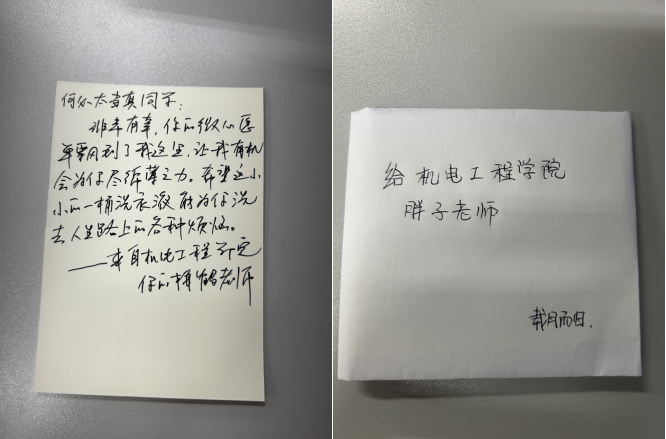 何必太当真同学:
非常有幸,你的微心愿
单飘到了我这里,让我有机
会为你尽绵薄之力。希望这小
小的一桶洗衣液能为你洗
去人生路上的各种烦恼。
——来自机电工程学院
你的老师
给机电工程学院
胖子老师
载月而归.